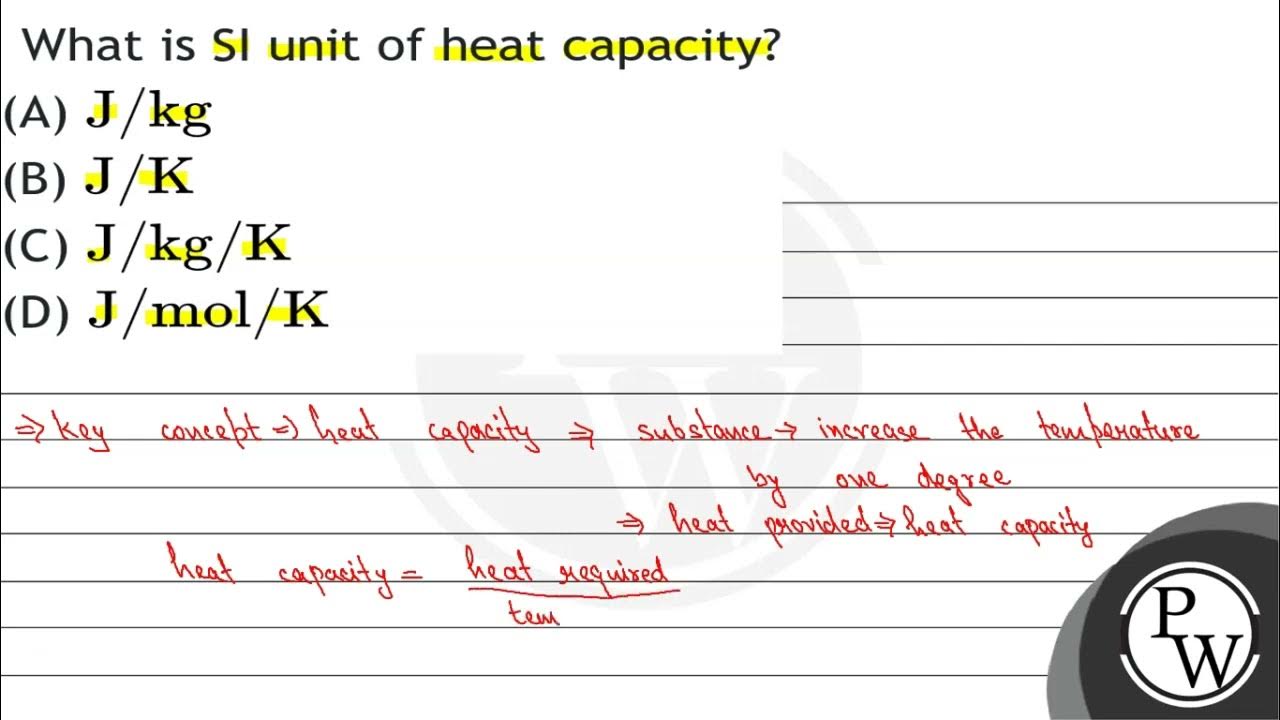 What is SI unit of heat capacity?
(A) J/kg
(B) J/K
(C) J/kg/K
(D) J/mol/K
⇒ key concept ⇒ heat capacity ⇒ substance → increase the temperature
by one degree
⇒ heat provided ⇒ heat capacity
heat capacity = heat required
tem
P
W